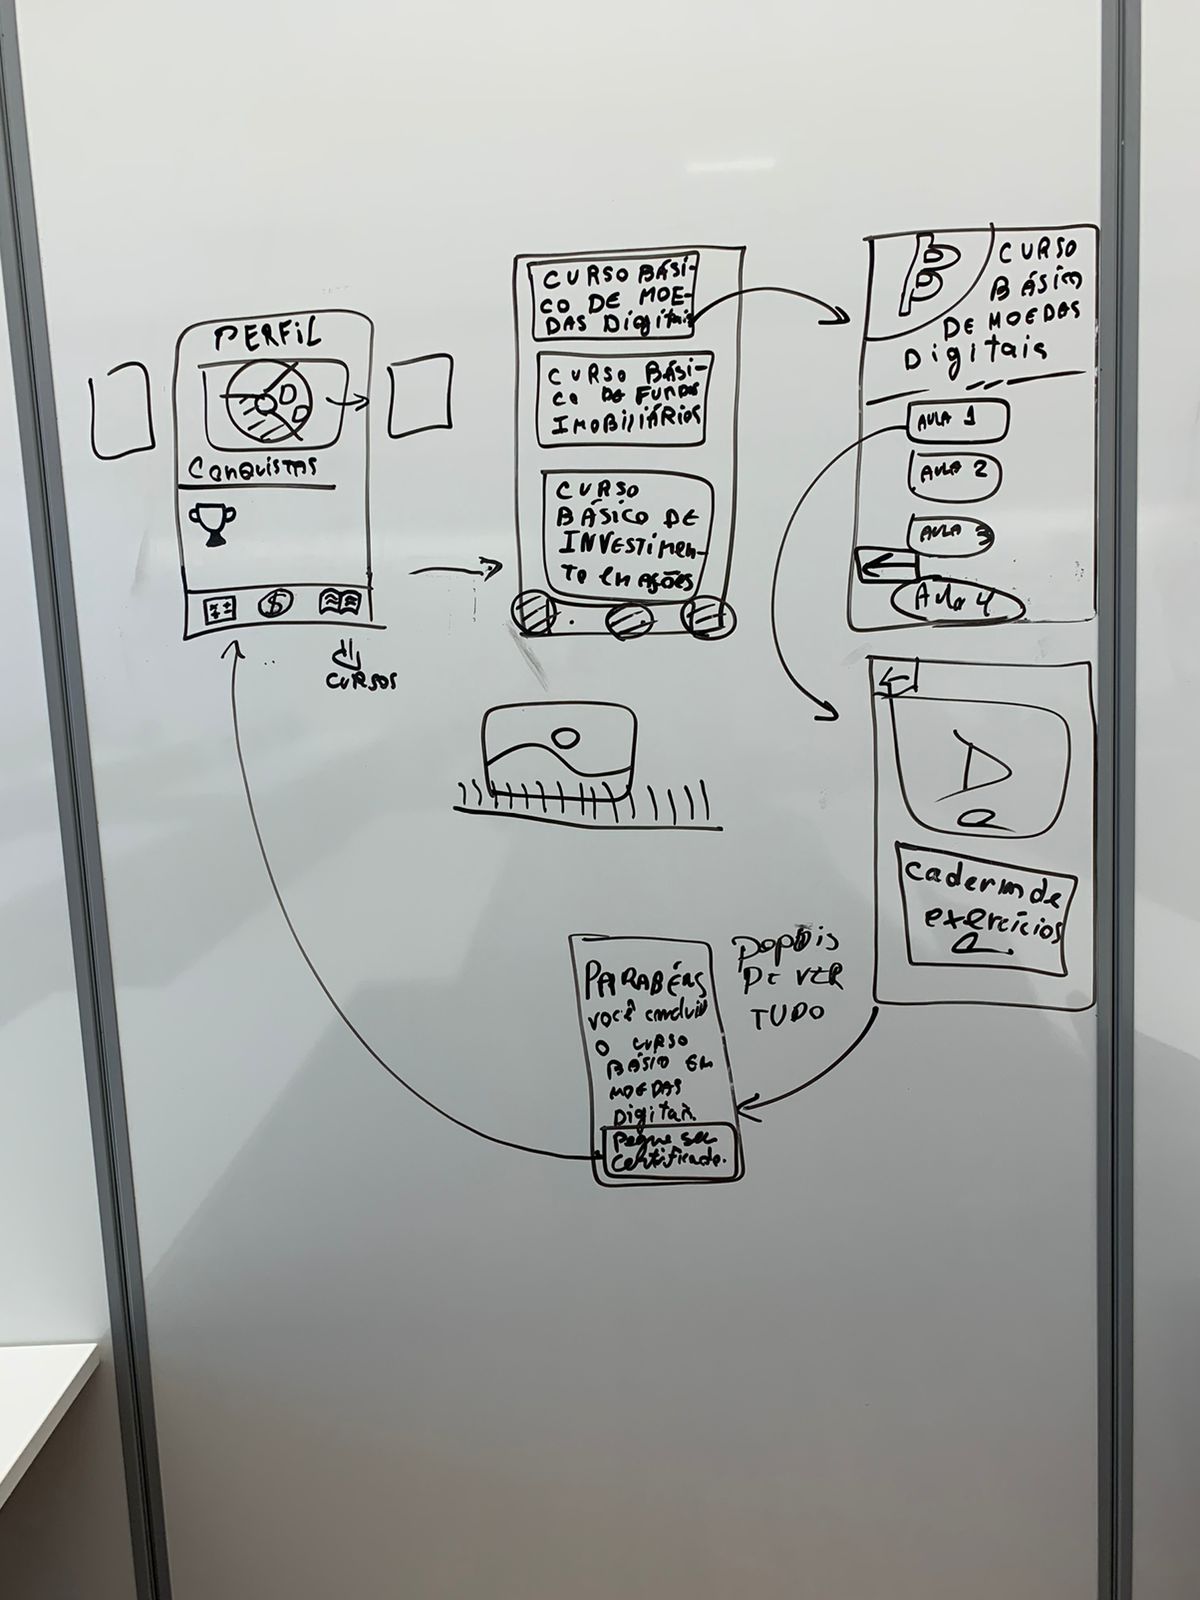 PERFIL
Conquistas
$
CURSOS
CURSO BÁSI-
CO DE MOE-
DAS Digitais
CURSO BÁSI-
CO DE FUNDOS
IMOBILIÁRIOS
CURSO
BÁSICO DE
INVESTIMEN-
TO EM AÇÕES
CURSO
BÁSICO
DE MOEDAS
Digitais
AULA 1
AULA 2
AULA 3
Aula 4
caderno de
exercícios
DE VER
TUDO
PARABÉNS
você concluiu
O CURSO
BÁSICO EM
MOEDAS
Digitais
Pegue seu
certificado.